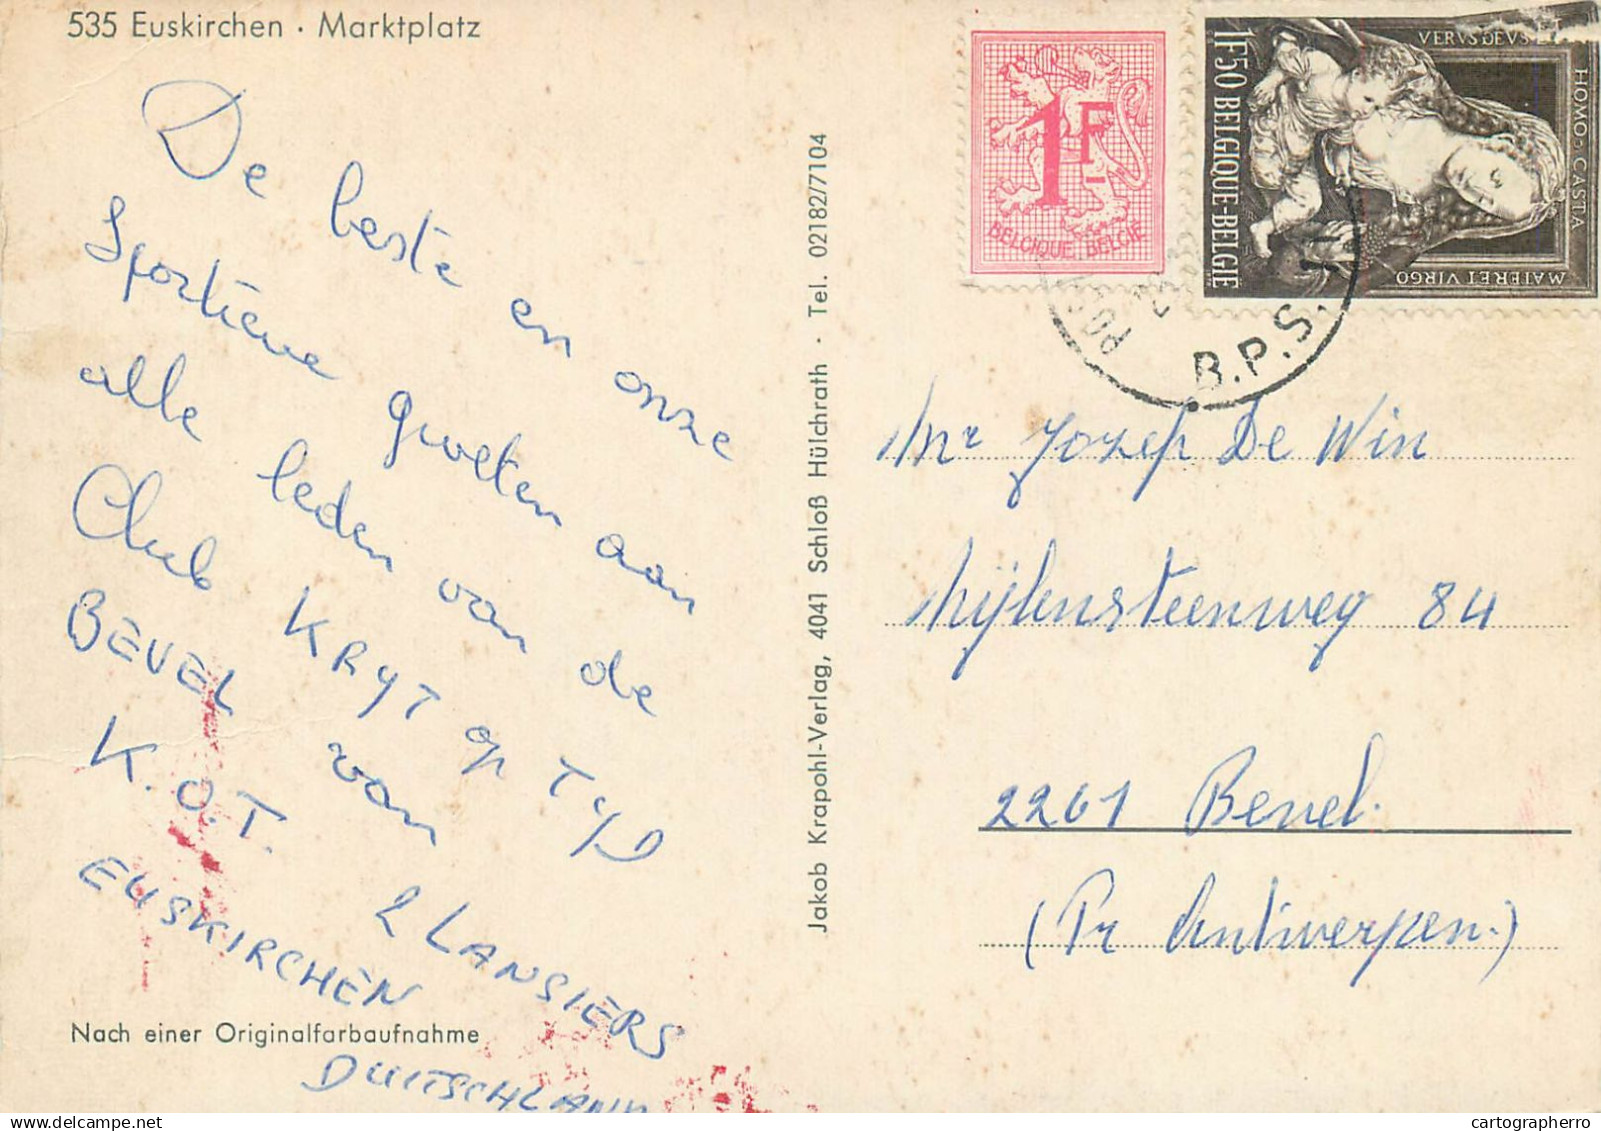 535 Euskirchen · Marktplatz
De beste en onze
Sportieve groeten aan
alle leden van de
Club KRYT op TYD
BEVEL van
K.O.T. 2 LANSIERS
EUSKIRCHEN
DUITSCHLAND
Nach einer Originalfarbaufnahme
Jakob Krapohl-Verlag, 4041 Schloß Hülchrath · Tel. 02182/7104
1F
BELGIQUE BELGIË
1F50 BELGIQUE-BELGIË
VERVS DEVS
HOMO CASTA
MATER ET VIRGO
B.P.S.
Mr Jozef De Win
Nijlensteenweg 84
2261 Bevel.
(Pr Antwerpen.)
cartographerro